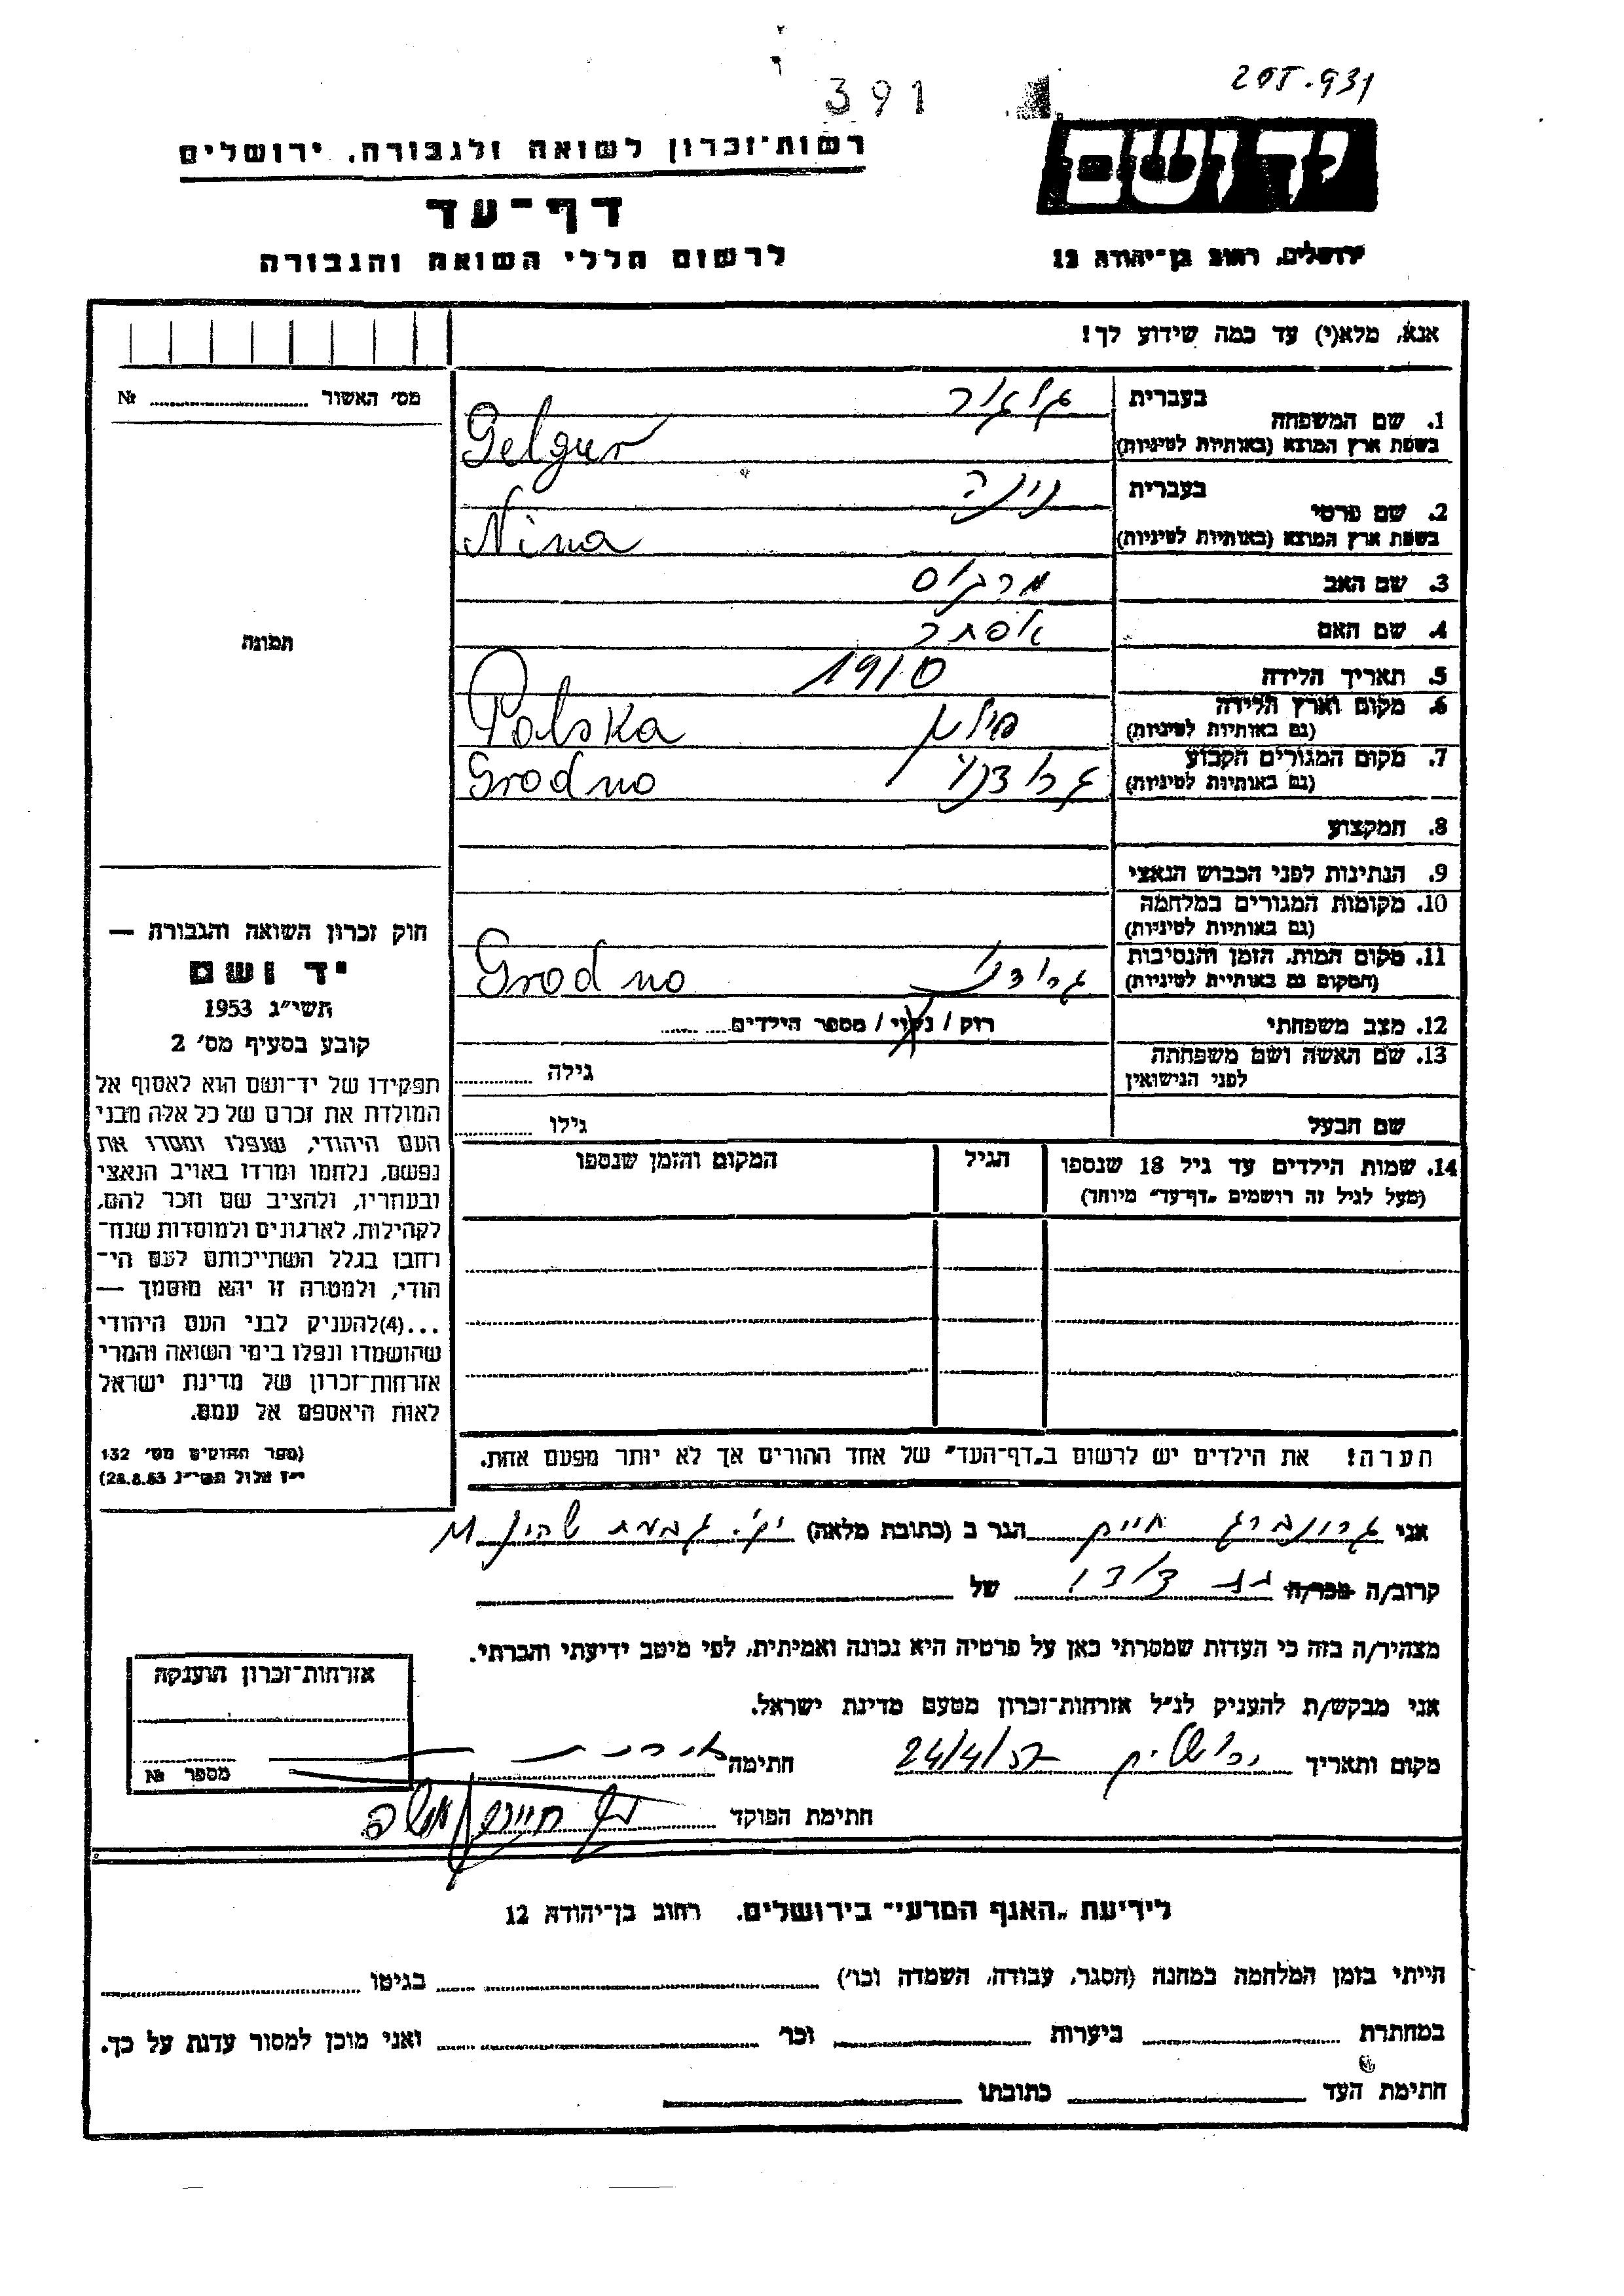 391
205.931
יד ושם
רשות־זכרון לשואה ולגבורה, ירושלים
דף־עד
לרשום חללי השואה והגבורה
ירושלים, רחוב בן־יהודה 12
אנא, מלא(י) עד כמה שידוע לך!
מס׳ האשור № 
1. שם המשפחה
בעברית
גלגור
בשפת ארץ המוצא (באותיות לטיניות)
Gelgur
2. שם פרטי
בעברית
נינה
בשפת ארץ המוצא (באותיות לטיניות)
Nina
3. שם האב
מרקוס
4. שם האם
אסתר
5. תאריך הלידה
1910
6. מקום וארץ הלידה
(גם באותיות לטיניות)
פולין
Polska
7. מקום המגורים הקבוע
(גם באותיות לטיניות)
גרודנו
Grodno
8. המקצוע
9. הנתינות לפני הכבוש הנאצי
10. מקומות המגורים במלחמה
(גם באותיות לטיניות)
11. מקום המות, הזמן והנסיבות
(המקום גם באותיות לטיניות)
גרודנו
Grodno
12. מצב משפחתי
רוק / נשוי / מספר הילדים
13. שם האשה ושם משפחתה
לפני הנישואין
גילה
שם הבעל
גילו
14. שמות הילדים עד גיל 18 שנספו
(מעל לגיל זה רושמים „דף־עד״ מיוחד)
הגיל
המקום והזמן שנספו
הערה! את הילדים יש לרשום ב„דף־העד״ של אחד ההורים אך לא יותר מפעם אחת.
תמונה
חוק זכרון השואה והגבורה —
יד ושם
תשי״ג 1953
קובע בסעיף מס׳ 2
תפקידו של יד־ושם הוא לאסוף אל
המולדת את זכרם של כל אלה מבני
העם היהודי, שנפלו ומסרו את
נפשם, נלחמו ומרדו באויב הנאצי
ובעוזריו, ולהציב שם וזכר להם,
לקהילות, לארגונים ולמוסדות שנח־
רבו בגלל השתייכותם לעם הי־
הודי, ולמטרה זו יהא מוסמך —
...(4)להעניק לבני העם היהודי
שהושמדו ונפלו בימי השואה והמרי
אזרחות־זכרון של מדינת ישראל
לאות היאספם אל עמם.
(ספר החוקים מס׳ 132
י״ז אלול תשי״ג 28.8.53)
אני גרונברג חיים הגר ב (כתובת מלאה) יק׳. גבעת
קרוב/ה מכר/ה בת דודו של
מצהיר/ה בזה כי העדות שמסרתי כאן על פרטיה היא נכונה ואמיתית, לפי מיטב ידיעתי והכרתי.
אני מבקש/ת להעניק לנ״ל אזרחות־זכרון מטעם מדינת ישראל.
מקום ותאריך ירושלים 24/4/57 חתימה
חתימת הפוקד
אזרחות־זכרון הוענקה
מספר №
לידיעת „האגף המדעי״ בירושלים, רחוב בן־יהודה 12
הייתי בזמן המלחמה במחנה (הסגר, עבודה, השמדה וכו׳) בגיטו
במחתרת ביערות וכו׳ ואני מוכן למסור עדות על כך.
חתימת העד כתובתו